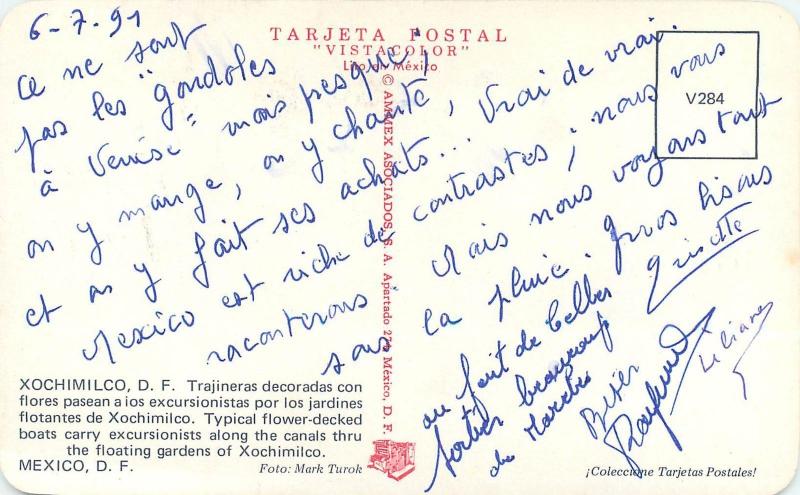 6-7-91
TARJETA POSTAL
"VISTACOLOR"
Lito en México
V284
Ce ne sont
pas les "gondoles
à Venise" mais presque ;
on y mange, on y chante,
et on y fait ses achats... Vrai de vrai.
Mexico est riche de contrastes ; nous vous
raconterons. Mais nous voyons tout
sous la pluie. Gros bisous
Ginette
on fait de belles
sorties beaucoup
de marche
Bises
Raymond
Liliane
© AMMEX ASOCIADOS, S. A. Apartado México, D. F.
XOCHIMILCO, D. F. Trajineras decoradas con
flores pasean a los excursionistas por los jardines
flotantes de Xochimilco. Typical flower-decked
boats carry excursionists along the canals thru
the floating gardens of Xochimilco.
MEXICO, D. F.
Foto: Mark Turok
¡Coleccione Tarjetas Postales!